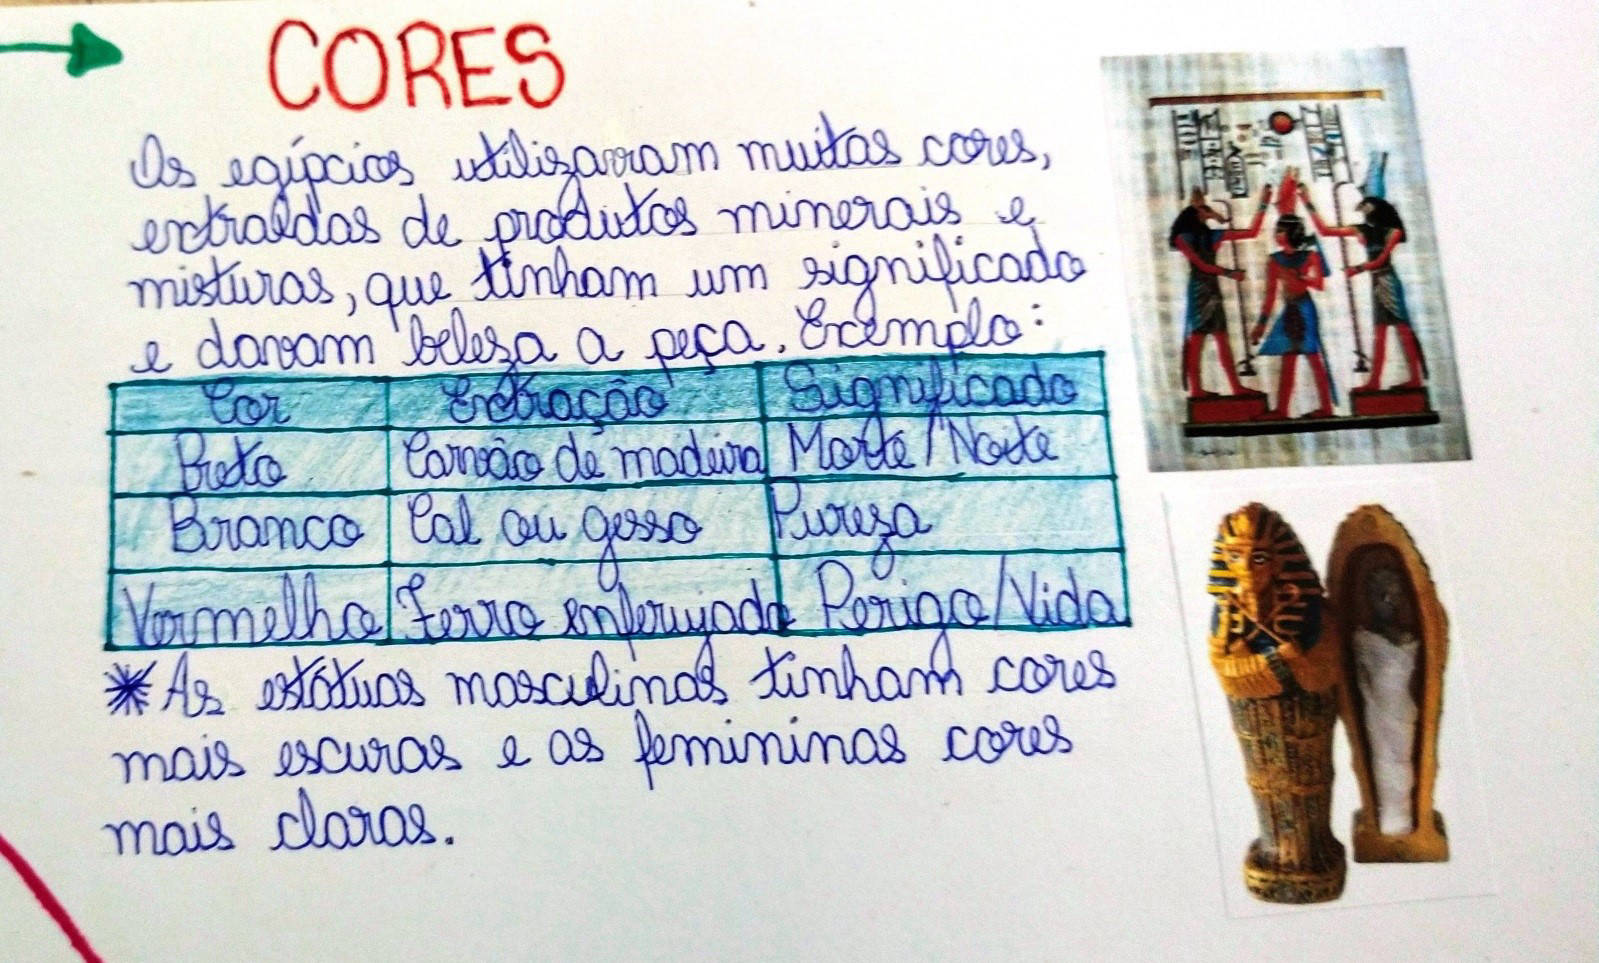 CORES
Os egípcios utilizavam muitas cores,
extraídas de produtos minerais e
misturas, que tinham um significado
e davam beleza a peça. Exemplo:
Cor Extração Significado
Preto Carvão de madeira Morte/Noite
Branco Cal ou gesso Pureza
Vermelho Ferro enferrujado Perigo/Vida
*As estátuas masculinas tinham cores
mais escuras e as femininas cores
mais claras.